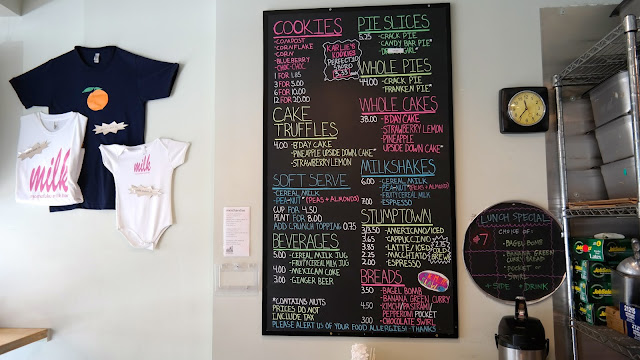 COOKIES
-COMPOST
-CORNFLAKE
-CORN
-BLUEBERRY
-CHOC-CHOC
1 FOR 1.85
3 FOR 5.00
6 FOR 10.00
12 FOR 20.00
KARLIE'S
KOOKIES
PERFECT 10
CAKE
TRUFFLES
4.00 -B'DAY CAKE
-PINEAPPLE UPSIDE DOWN CAKE*
-STRAWBERRY LEMON
SOFT SERVE
-CEREAL MILK
-PEA-NUT* (PEAS + ALMONDS)
CUP FOR 4.50
PINT FOR 8.00
ADD CRUNCH TOPPING 0.75
BEVERAGES
5.00 -CEREAL MILK JUG
-FRUITY CEREAL MILK JUG
4.00 -MEXICAN COKE
3.00 -GINGER BEER
*CONTAINS NUTS
PRICES DO NOT
INCLUDE TAX
PLEASE ALERT US OF YOUR FOOD ALLERGIES! -THANKS
PIE SLICES
5.25 -CRACK PIE
-CANDY BAR PIE*
WHOLE PIES
44.00 -CRACK PIE
-FRANKEN PIE*
WHOLE CAKES
38.00 -B'DAY CAKE
-STRAWBERRY LEMON
-PINEAPPLE
UPSIDE DOWN CAKE*
MILKSHAKES
6.00 -CEREAL MILK
-PEA-NUT* (PEAS + ALMONDS)
7.00 -ESPRESSO
STUMPTOWN
3/3.50 -AMERICANO/ICED
3.65 -CAPPUCCINO
3.85 -LATTE/ICED
2.25 -MACCHIATO
2.00 -ESPRESSO
COLD
BREW
BREADS
3.50 -BAGEL BOMB
-BANANA GREEN CURRY
4.50 -KIMCHI/PASTRAMI/
PEPPERONI POCKET
3.00 -CHOCOLATE SWIRL
LUNCH SPECIAL
$7
CHOICE OF:
-BAGEL BOMB
-BANANA GREEN
CURRY BREAD
-POCKET OR
-SWIRL
+ SIDE + DRINK
milk
milk